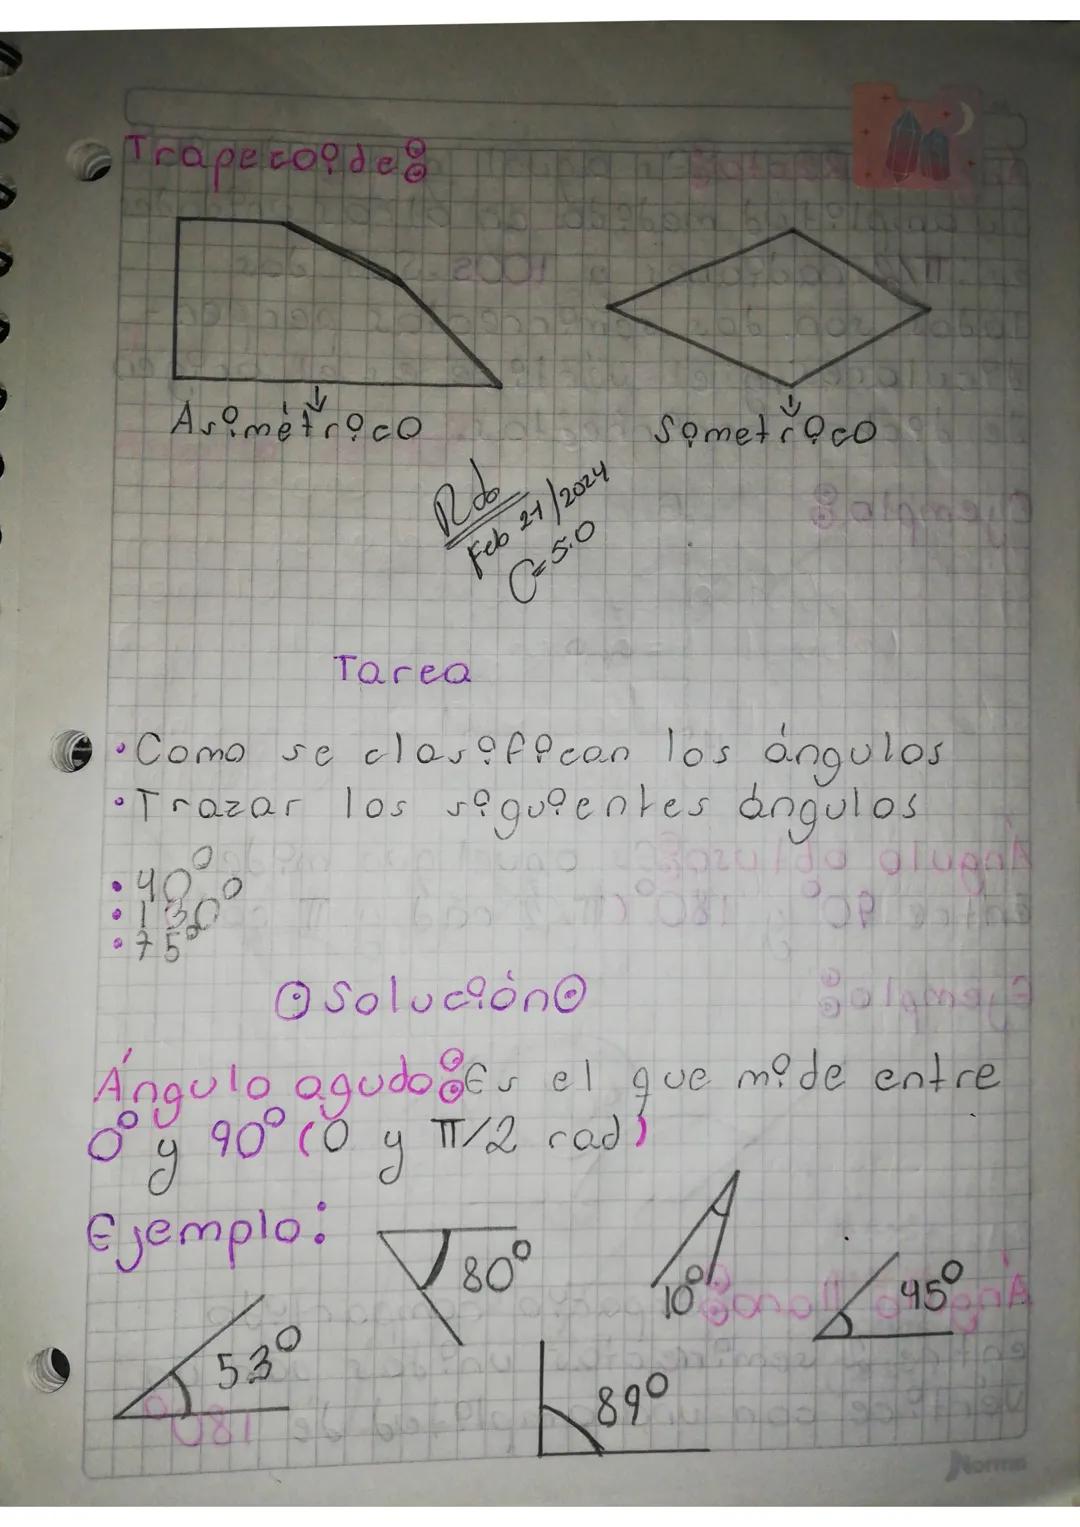 Trapezoide:
Asimétrico
Simetrico
Rdo
Feb 21/2024
C=5.0
Tarea
• Como se clasifican los ángulos
• Trazar los siguientes ángulos
• 40°
• 130°
• 75°
Solución
Ángulo agudo: Es el que mide entre
0° y 90° (0 y π/2 rad)
Ejemplo:
80°
10°
45°
53°
89°
Norma